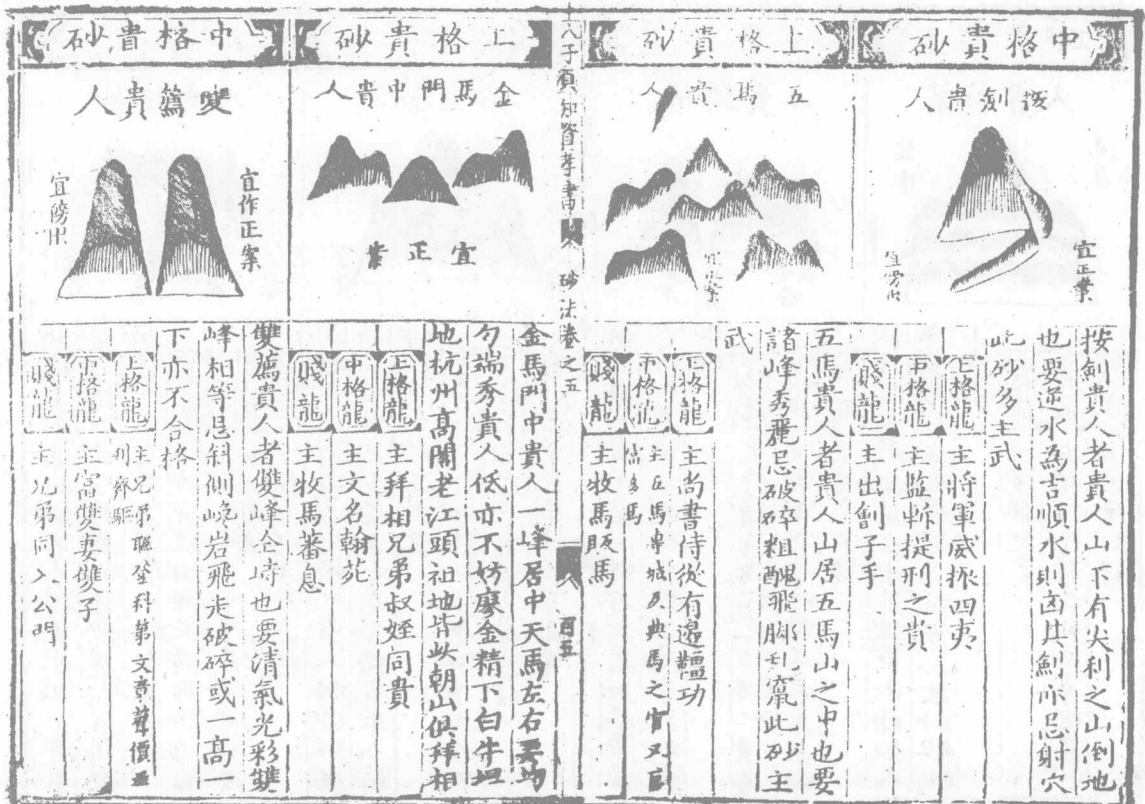 中格貴砂
按劍貴人
宜正案
按劍貴人者貴人山下有尖利之山倒地
也要逆水為吉順水則凶其劍亦忌射穴
此砂多主武
上格龍 主將軍威振四夷
中格龍 主監軒提刑之貴
賤龍 主出劊子手
上格貴砂
五馬貴人
五馬貴人者貴人山居五馬山之中也要
諸峰秀麗忌破碎粗醜飛脚 此砂主
武
上格龍 主尚書侍從有邊疆功
中格龍 主五馬專城及典馬之官又主富多馬
賤龍 主牧馬販馬
人子須知資孝書 砂法卷之五
上格貴砂
金馬門中貴人
宜正案
金馬門中貴人一峰居中天馬左右要均
勻端秀貴人低亦不妨廖金精下白牛坦
地杭州高閣老江頭祖地皆此朝山俱拜相
上格龍 主拜相兄弟叔姪同貴
中格龍 主文名翰苑
賤龍 主牧馬蕃息
中格貴砂
雙薦貴人
宜作正案
宜傍出
雙薦貴人者雙峰並峙也要清氣光彩雙
峰相等忌斜側巉岩飛走破碎或一高一
下亦不合格
上格龍 主兄弟聯登科第文章聲價並列齊驅
中格龍 主富雙妻雙子
賤龍 主兄弟同入公門